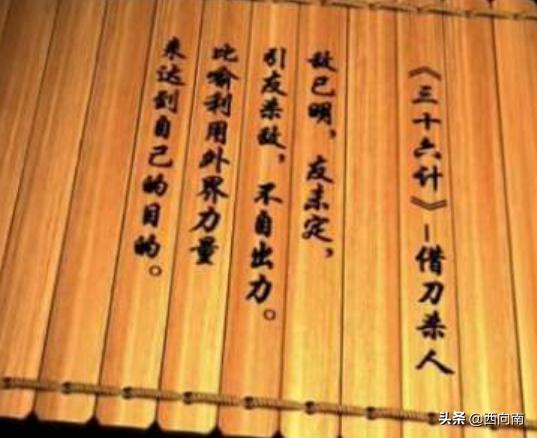 《三十六计》－借刀杀人
敌已明，友未定，
引友杀敌，不自出力。
比喻利用外界力量
来达到自己的目的。
头条 @西向南